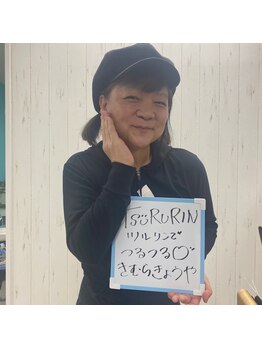 TSURURIN
ツルリンで
つるつる♡
きむらきょうや